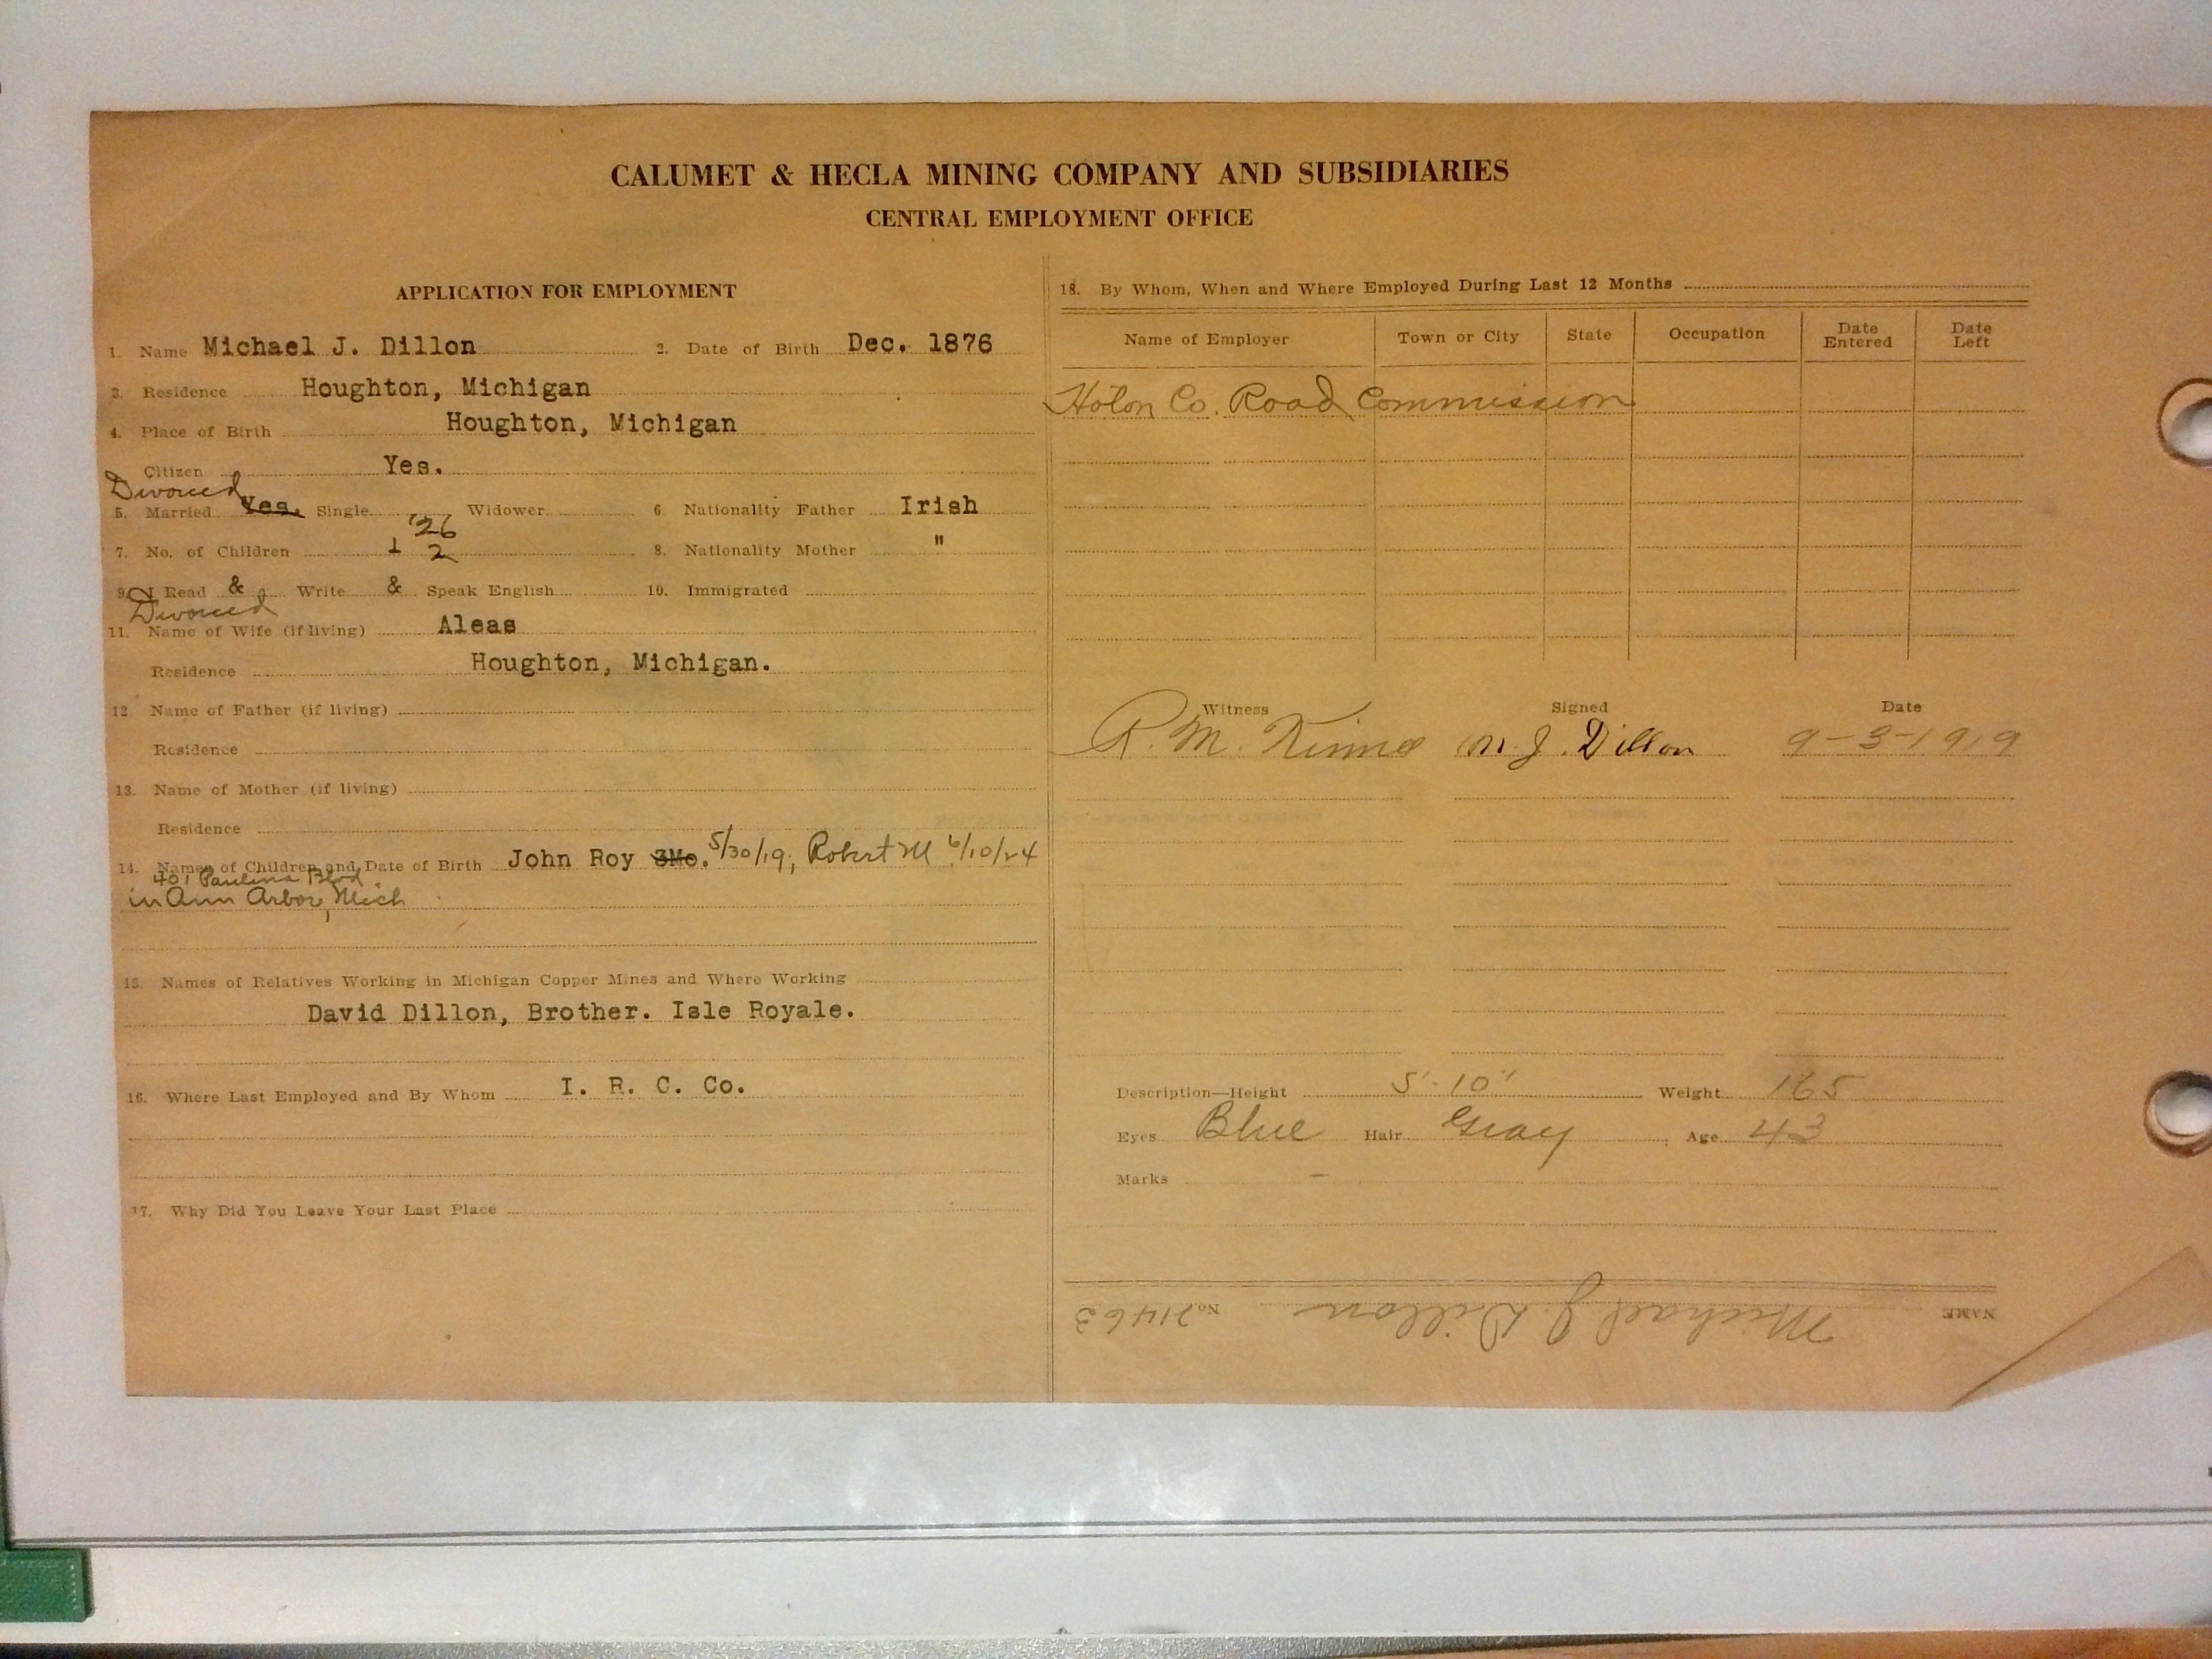 CALUMET & HECLA MINING COMPANY AND SUBSIDIARIES
CENTRAL EMPLOYMENT OFFICE
APPLICATION FOR EMPLOYMENT
1. Name Michael J. Dillon 2. Date of Birth Dec. 1876
3. Residence Houghton, Michigan
4. Place of Birth Houghton, Michigan
Citizen Yes.
Divorced
5. Married Yes. Single Widower 6. Nationality Father Irish
'26
7. No. of Children 1 2 8. Nationality Mother "
9. I Read & Write & Speak English 10. Immigrated
Divorced
11. Name of Wife (if living) Aleas
Residence Houghton, Michigan.
12. Name of Father (if living)
Residence
13. Name of Mother (if living)
Residence
14. Names of Children and Date of Birth John Roy 3Mo. 5/30/19, Robert M 6/10/24
401 Paulina Blvd
in Ann Arbor, Mich
15. Names of Relatives Working in Michigan Copper Mines and Where Working
David Dillon, Brother. Isle Royale.
16. Where Last Employed and By Whom I. R. C. Co.
17. Why Did You Leave Your Last Place
18. By Whom, When and Where Employed During Last 12 Months
Name of Employer Town or City State Occupation Date Entered Date Left
Hoton Co. Road Commission
Witness Signed Date
R. M. M. J. Dillon 9-3-1919
Description—Height 5'-10" Weight 165
Eyes Blue Hair Gray Age 43
Marks -
NAME Michael J. Dillon No. 21463